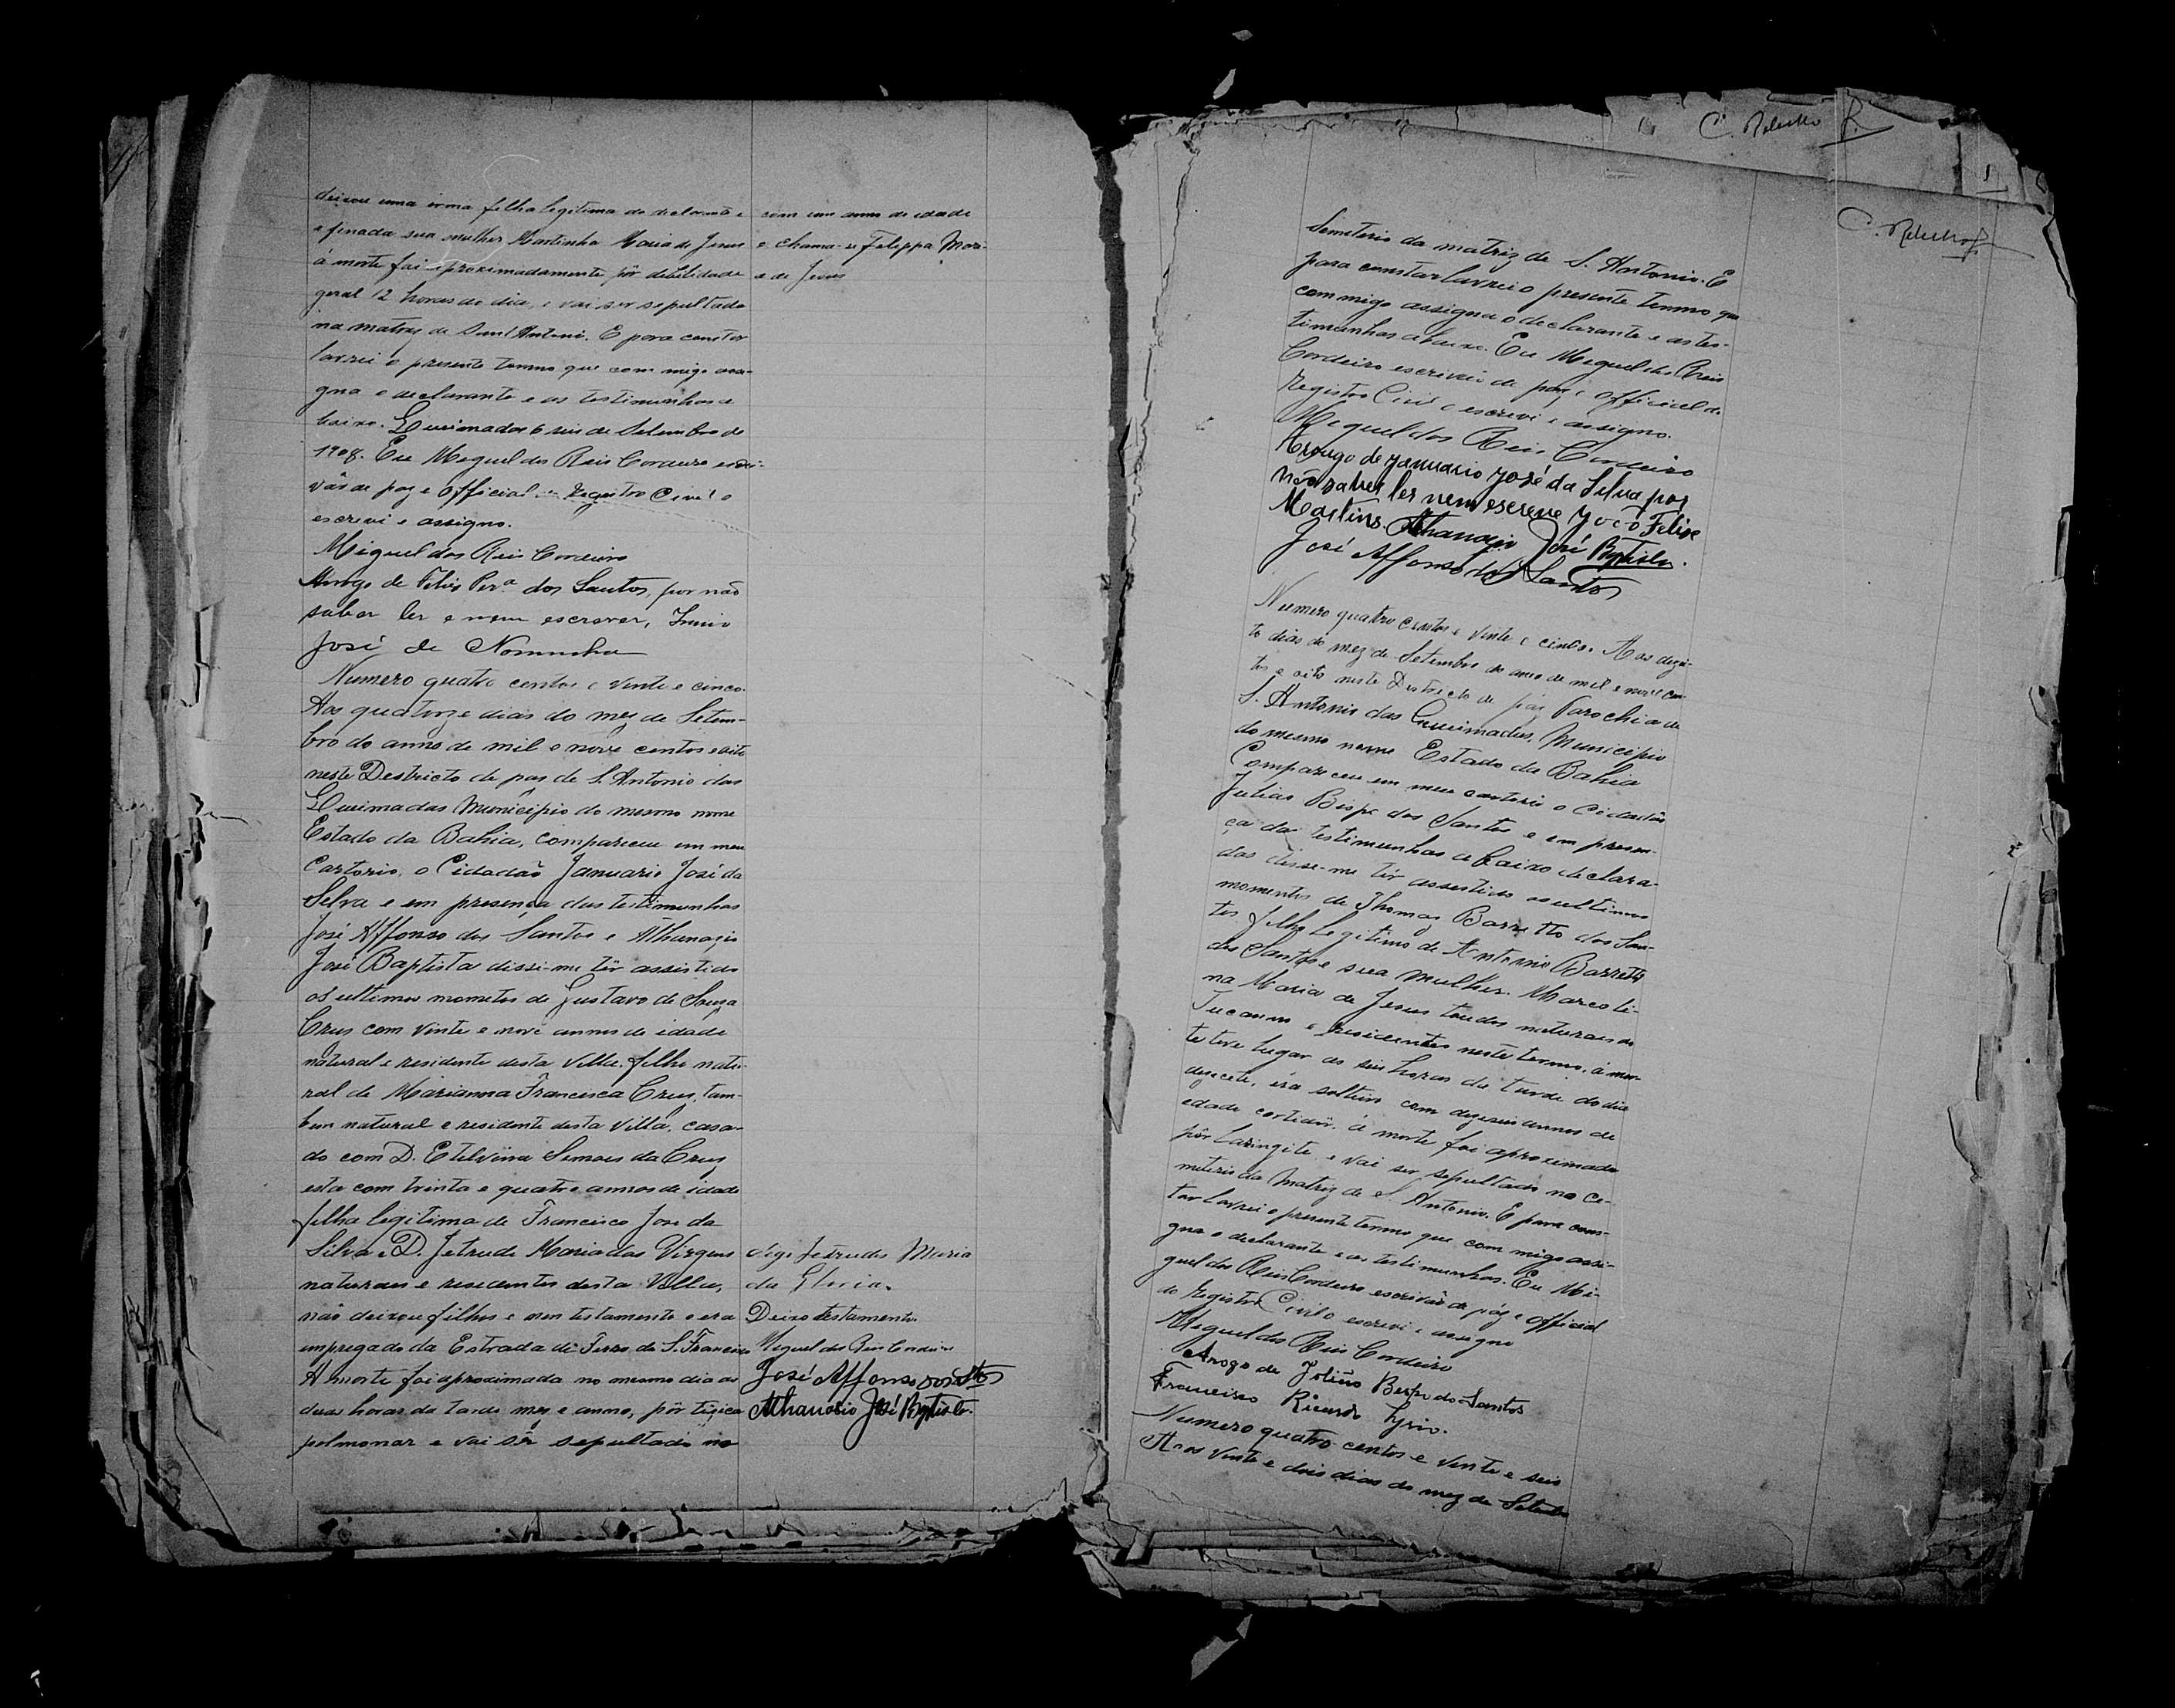 deixou uma irma filha legitima do declarante e
a finada sua mulher Martinha Maria de Jesus
á morte foi aproximadamente pôr debilidade
geral 12 horas do dia, e vai ser sepultada
na matriz de Sant Antonio. E para constar
lavrei o presente termo que com migo assi-
gna o declarante e as testimunhas a
baixo. Queimadas 6 seis de Setembro de
1908. Eu Miguel dos Reis Cordeiro escri-
vão de paz e official Registro Civel o
escrevi e assigno.
Miguel dos Reis Cordeiro
Arrogo de Felis Per.ª dos Santos, por não
saber ler e nem escrever,
José de
com um anno de idade
e chama-se Felippa Mari-
a de Jesus
Numero quatro centos e vinte e cinco.
Aos quatorze dias do mez de Setem-
bro do anno de mil e nove centos e oito
neste Destricto de paz de S. Antonio das
Queimadas Municipio do mesmo nome
Estado da Bahia, compareceu em meu
Cartorio, o Cidadão Januario José da
Silva e em presença das testimunhas
José Affonso dos Santos e Athanazio
José Baptista disse-me têr assistido
os ultimos mometos de Gustavo de Souza
Cruz com vinte e nove annos de idade
natural e residente desta Villa, filho natu-
ral de Marianna Francisca Cruz, tam-
bem natural e residente desta Villa, casa-
do com D. Etelvina Simoes da Cruz
esta com trinta e quatro annos de idade
filha legitima de Francisco José da
Silva e D. Jetrude Maria das Virgens
naturaes e residentes desta Villa,
não deixou filhos e nem testamento e era
empregado da Estrada de Ferro de S. Francisco
A morte foi aproximada no mesmo dia as
duas horas da tarde mez e anno, pôr tizica
polmonar e vai sêr sepultado no
digo Jetrudes Maria
da Gloria.
Deixo testamento
Miguel dos Reis Cordeiro
José Affonso dos Stos
Athanazio José Baptista.
C. Rebello
1
C. Rebello
Semeterio da matriz de S. Antonio. E
para constar lavrei o presente termo que
com migo assigna o declarante e as tes-
timunhas abaixo. Eu Miguel dos Reis
Cordeiro escrivão de paz e official do
Registro Civil o escrevi e assigno.
Miguel dos Reis Cordeiro
Arougo de Januario José da Silva por
não saber ler nem escreve João Felix
Martins. Athanazio José Baptista.
José Affonso dos Santos
Numero quatro centos e vinte e cinco. Aos dezoi-
to dias do mez de Setembro do anno de mil e nove cen-
tos e oito neste Destricto de paz Parochia de
S. Antonio das Queimadas, Municipio
do mesmo nome Estado da Bahia
Compareceu em meu cartorio o Cidadão
Julião Bispo dos Santos e em presen-
ça das testimunhas abaixo declara-
das disse-me têr assestido os ultimos
momentos de Thomaz Barretto dos San-
tos filho Legitimo de Antonio Barretto
dos Santos e sua mulher Marcoli-
na Maria de Jesus toudos naturaes do
Tucanno e residentes neste termo, á mor-
te teve lugar as seis horas da tarde do dia
dezecete, éra solteiro com dezeseis annos de
edade á morte foi aproximada
pôr Laringite e vai ser sepultado no Ce-
miterio da Matriz de S. Antonio. E para cons-
tar lavrei o presente termo que com migo assi-
gna o declarante e as testimunhas. Eu Mi-
guel dos Reis Cordeiro escrivão de páz e official
do Registro Civil o escrevi e assigno
Miguel dos Reis Cordeiro
Arogo de Julião Bispo dos Santos
Francisco Ricardo Lyrio.
Numero quatro centos e vente e seis
Aos vinte e dois dias do mez de Setembro